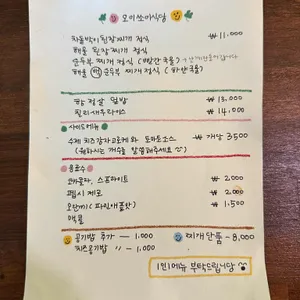 오미쏘미식당
차돌박이 된장찌개 정식 ₩11,000
해물 된장찌개 정식
순두부 찌개 정식 (빨간국물)
해물 순두부 찌개 정식 (하얀국물)
항정살 덮밥 ₩13,000
칠리새우라이스 ₩14,000
사이드메뉴
수제 치즈감자고로케와 토마토소스 개당 3500
(원하시는 개수를 말씀해주세요)
음료수
코카콜라, 스프라이트 ₩2,000
펩시 제로 2,000
오란씨 (파인애플맛) ₩1,500
맥콜
공기밥 추가 - 1,000
치즈공기밥 〃 - 1,000
찌개단품 - 8,000
1인1메뉴 부탁드립니당